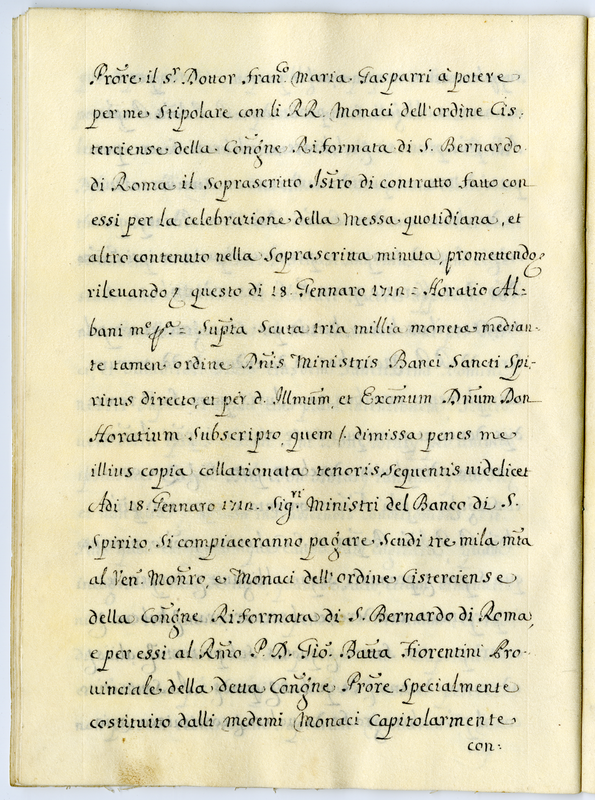 Prõre il s.r Dottor Fran.co Maria Gasparri à potere
per me stipolare con li RR. Monaci dell'ordine Cis:
terciense della Congñe Riformata di S. Bernardo
di Roma il soprascritto Istro di contratto fatto con
essi per la celebrazione della Messa quotidiana, et
altro contenuto nella soprascritta minuta, promettendo
rileuando questo di 18 Gennaro = Horatio Al:
bani m.o pp.a = Supta Scuta tria millia moneta median:
te tamen ordine Dñis Ministris Banci Sancti Spi:
ritus directo, et per d. Illmum, et Excmum Dñum Don
Horatium subscripto, quem /. dimissa penes me
illius copia collationata tenoris sequentis uidelicet
Adi 18 Gennaro Sig.ri Ministri del Banco di S.
Spirito si compiaceranno pagare scudi tre mila mta
al Ven. Monro, e Monaci dell'ordine Cisterciense
della Congñe Riformata di S. Bernardo di Roma,
e per essi al Rmo P. D. Gio. Batta Fiorentini Pro:
uinciale della detta Congñe Prõre specialmente
costituito dalli medemi Monaci Capitolarmente
con: